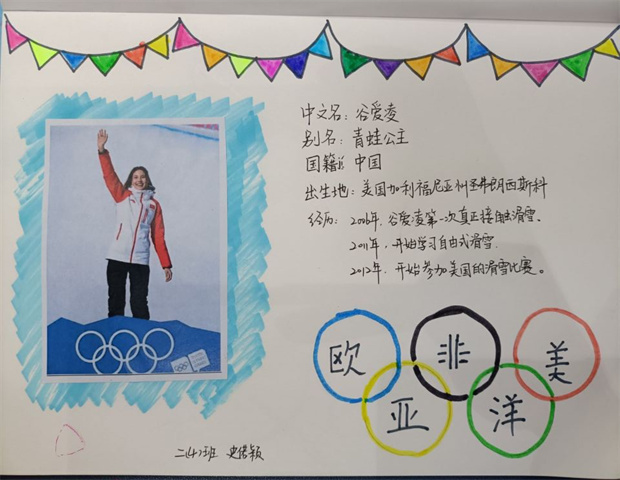 中文名：谷爱凌
别名：青蛙公主
国籍：中国
出生地：美国加利福尼亚州圣弗朗西斯科
经历：2006年，谷爱凌第一次真正接触滑雪。
2011年，开始学习自由式滑雪。
2012年，开始参加美国的滑雪比赛。
欧 非 美
亚 洋
二(4)班